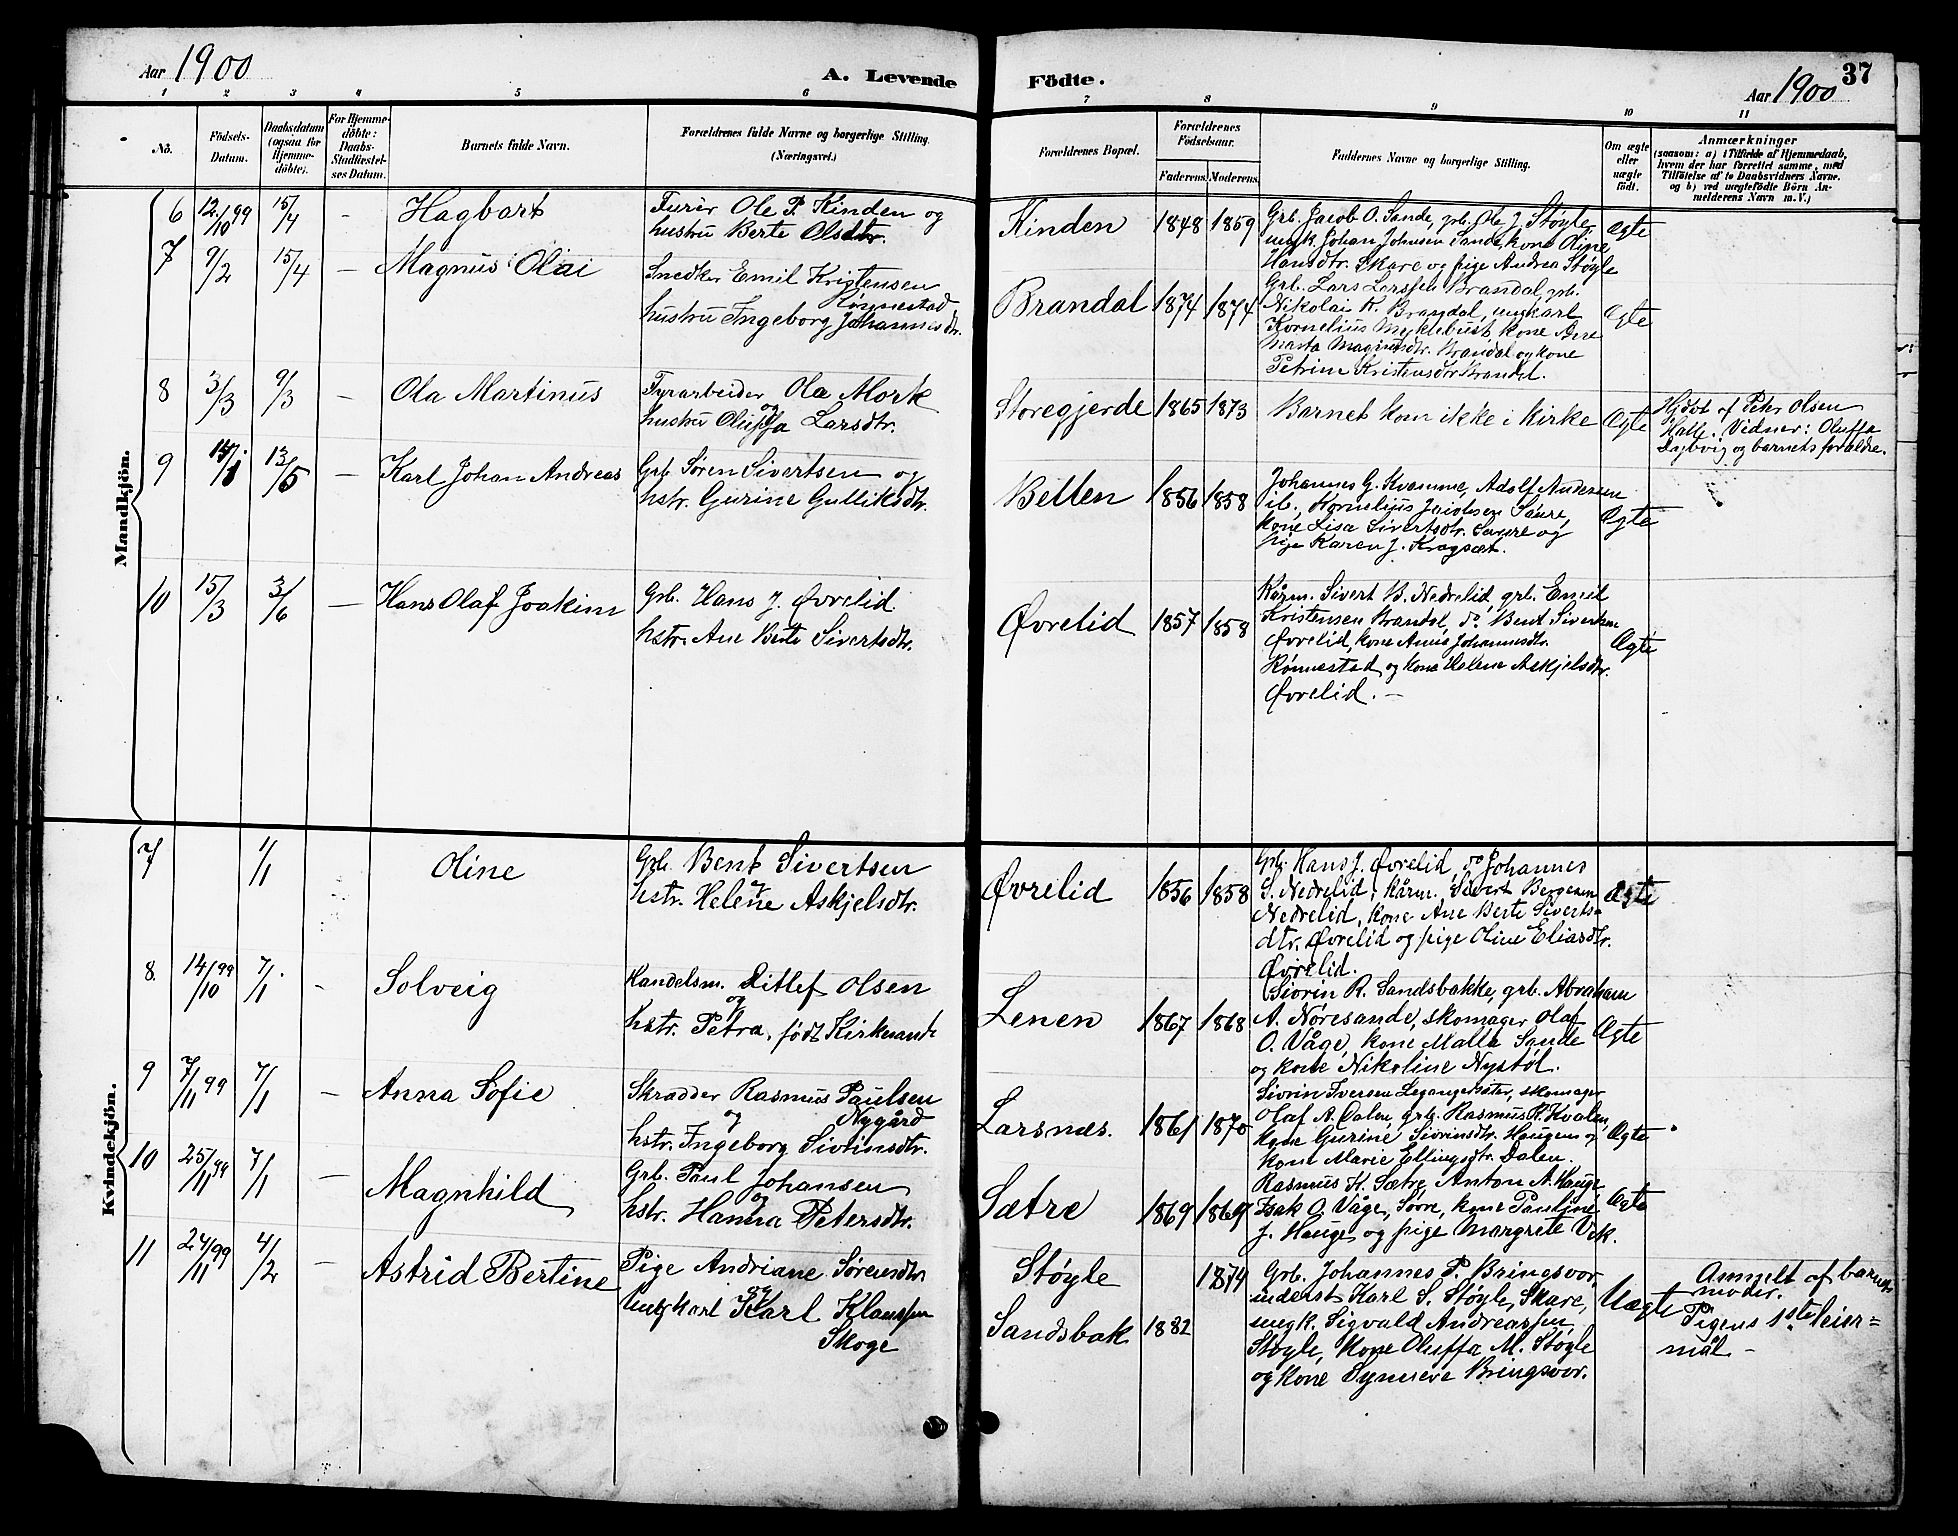 Aar 1900
A. Levende
Födte.
Aar 1900
37
1 2 3 4 5 6 7 8 9 10 11
No.
Födsels-
Datum.
Daabsdatum
(ogsaa for
Hjemme-
döbte).
For Hjemme-
döbte:
Daabs-
Stadfæstel-
ses Datum.
Barnets fulde Navn.
Forældrenes fulde Navne og borgerlige Stilling.
(Næringsvei.)
Forældrenes Bopæl.
Forældrenes
Födselsaar.
Faderens. Moderens.
Faddernes Navne og borgerlige Stilling.
Om ægte
eller
uægte
födt.
Anmærkninger
(saasom: a) i Tilfælde af Hjemmedaab,
hvem der har forrettet samme, med
Tilföielse af to Daabsvidners Navne.
og b) ved uægtefödte Börn An-
melderens Navn m.V.)
Mandkjön.
6 12/10 99 15/4 - Hagbart
Furér Ole P. Kinden og
hustru Berte Olsdtr.
Kinden 1848 1859
Grb. Jacob O. Sande, grb. Ole J. Støyle,
ungk. Johan Johnsen Sande, kone Oline
Hansdtr. Skare og pige Andrea Støyle
Ægte
7 9/2 15/4 - Magnus Olai
Snedker Emil Kristensen
Rönnestad
hustru Ingeborg Johannesdtr.
Brandal 1874 1874
Grb. Lars Larssen Brandal, grb.
Nikolai K. Brandal, ungkarl
Kornelius Myklebust, kone Ane
Marta Magnusdtr. Brandal og kone
Petrine Kristensdtr Brandal.
Ægte
8 3/3 9/3 - Ola Martinus
Fyrarbeider Ola Mork
og
hustru Oluffa Larsdtr.
Storegjerde 1865 1873
Barnet kom ikke i kirke
Ægte
Hjdöbt af Peter Olsen
Halle. Vidner: Oluffa
Dybvig og barnets forældre.
9 13/5 - Karl Johan Andreas
Grb. Søren Sivertsen og
hstr. Gurine Gulliksdtr.
Betten 1856 1858
Johannes G. Kvamme, Adolf Andersen
ib., Kornelius Jacobsen Saure,
kone Lisa Sivertsdtr. Saure og
pige Karen J. Kragset.
Ægte
10 15/3 3/6 - Hans Olaf Joakim
Grb. Hans J. Øvrelid
hstr. Ane Berte Sivertsdtr.
Øvrelid 1857 1858
Kårm. Sivert B. Nedrelid, grb. Emil
Kristensen Brandal, do Bent Sivertsen
Øvrelid, kone Anna Johannesdtr.
Rönnestad og kone Helene Askjelsdtr.
Øvrelid. -
Ægte
Kvindekjön.
7 1/1 Oline
Grb. Bent Sivertsen
og
hstr. Helene Askjelsdtr.
Øvrelid 1856 1858
Grb. Hans J. Øvrelid, do Johannes
S. Nedrelid, kårm. Sivert Bergesen
Nedrelid, kone Ane Berte Siverts-
dtr. Øvrelid og pige Oline Eliasdtr.
Øvrelid.
Ægte
8 14/10 99 7/1 - Solveig
Handelsm. Ditlef Olsen
og
hstr. Petra, født Kirkesande
Lenen 1867 1868
Sivrin R. Sandsbakke, grb. Abraham
A. Nøresande, skomager Olaf
O. Våge, kone Malla Sande
og kone Nikoline Nystøl.
Ægte
9 7/11 99 7/1 - Anna Sofie
Skradder Rasmus Paulsen
og Nygård
hstr. Ingeborg Sivrinsdtr.
Larsnæs. 1861 1870
Sivrin Iversen Legangersæter, skomager
Olaf A. Dalen, grb. Rasmus R. Kvalen,
kone Gurine Sivrinsdtr. Haugen og
kone Marie Ellingsdtr. Dalen.
Ægte
10 25/11 99 7/1 - Magnhild
Grb. Paul Johansen
og
hstr. Hanna Petersdtr.
Sætre 1869 1869
Rasmus K. Sætre, Anton A. Hauge
Isak O. Våge, Sövre, kone Pauline
J. Hauge og pige Margrete Vik.
Ægte
11 24/11 99 4/2 - Astrid Bertine
Pige Andriane Sørensdtr
og
Ungkarl Karl Klaussen
Skoge
Støyle 1874
Sandsbak 1882
Grb. Johannes P. Bringsvor,
inderst Karl S. Støyle, Skare,
ungk. Sigvald Andreassen
Støyle, kone Oluffa M. Støyle
og kone Synneve Bringsvor.
Uægte
Anmelt af barnets
moder.
Pigens 1ste leier=
mål -